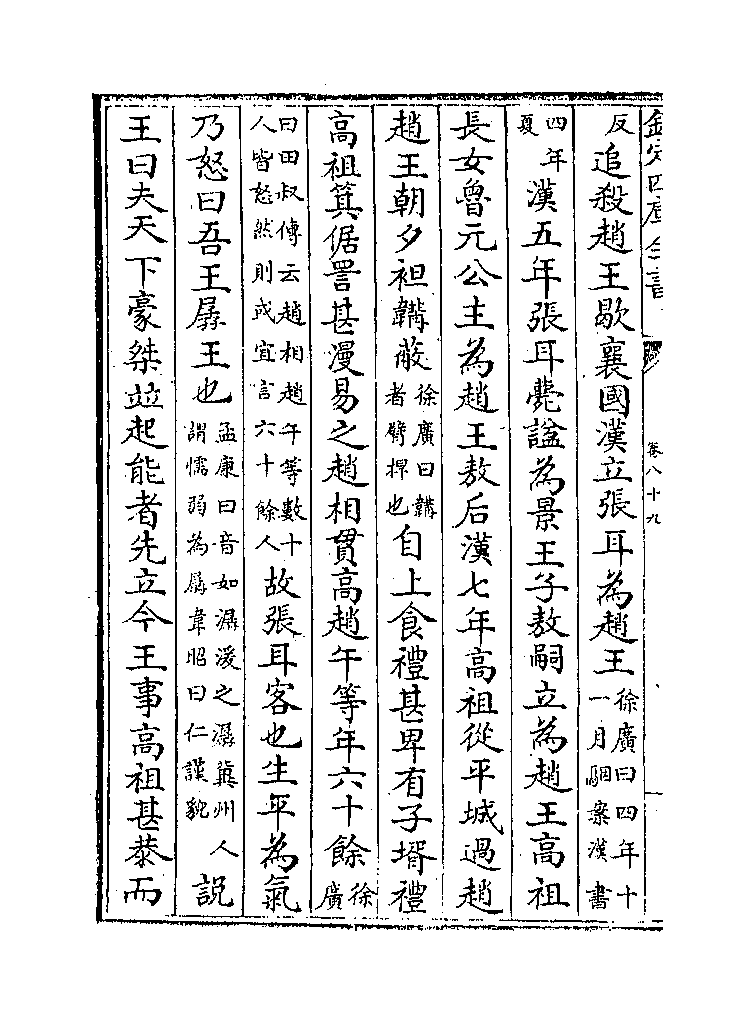 欽定四庫全書
卷八十九
反追殺趙王歇襄國漢立張耳為趙王徐廣曰四年十一月駰案漢書
四年夏漢五年張耳薨諡為景王子敖嗣立為趙王高祖
長女魯元公主為趙王敖后漢七年高祖從平城過趙
趙王朝夕袒韝蔽徐廣曰韝者臂捍也自上食禮甚卑有子壻禮
高祖箕倨詈甚漫易之趙相貫高趙午等年六十餘徐廣
曰田叔傳云趙相趙午等數十人皆怒然則或宜言六十餘人故張耳客也生平為氣
乃怒曰吾王孱王也孟康曰音如潺湲之潺冀州人謂懦弱為孱韋昭曰仁謹貌說
王曰夫天下豪桀並起能者先立今王事高祖甚恭而